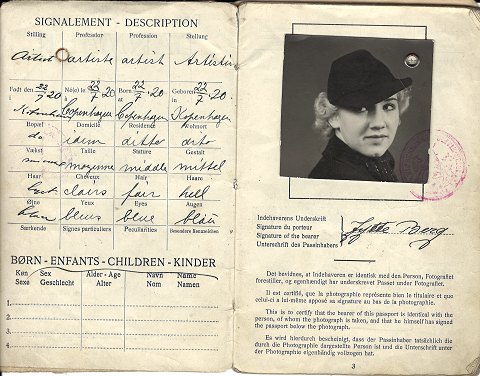 SIGNALEMENT - DESCRIPTION
Stilling Professor Profession Stellung
Artist artiste artist Artistin
Født den 22/7 20 Né(e) le 22/7 20 Born 22/7 20 Geboren 22/7 20
at
à in
København Copenhagen Copenhagen Kopenhagen
Bopæl Domicile Residence Wohnort
do idem ditto dito
Vækst Taille Stature Gestalt
moyenne middle mittel
Haar Cheveux Hair Haare
clairs fair hell
Øjne Yeux Eyes Augen
blaa bleus blue blau
Særkende Signes particuliers Peculiarities Besondere Kennzeichen
BØRN - ENFANTS - CHILDREN - KINDER
Køn Sex Alder - Age Navn Name
Sexe Geschlecht Alter Nom Namen
1.
2.
3.
4.
Indehaverens Underskrift
Signature du porteur
Signature of the bearer
Unterschrift des Passinhabers
Jytte Berg
Det bevidnes, at Indehaveren er identisk med den Person, Fotografiet
forestiller, og egenhændigt har underskrevet Passet under Fotografiet.
Il est certifié, que la photographie représente bien le titulaire et que
celui-ci a lui-même apposé sa signature au bas de la photographie.
This is to certify that the bearer of this passport is identical with the
person, of whom the photograph is taken, and that he himself has signed
the passport below the photograph.
Es wird hierdurch bescheinigt, dass der Passinhaber tatsächlich die
durch die Photographie dargestellte Person ist und die Unterschrift unter
der Photographie eigenhändig vollzogen hat.
3